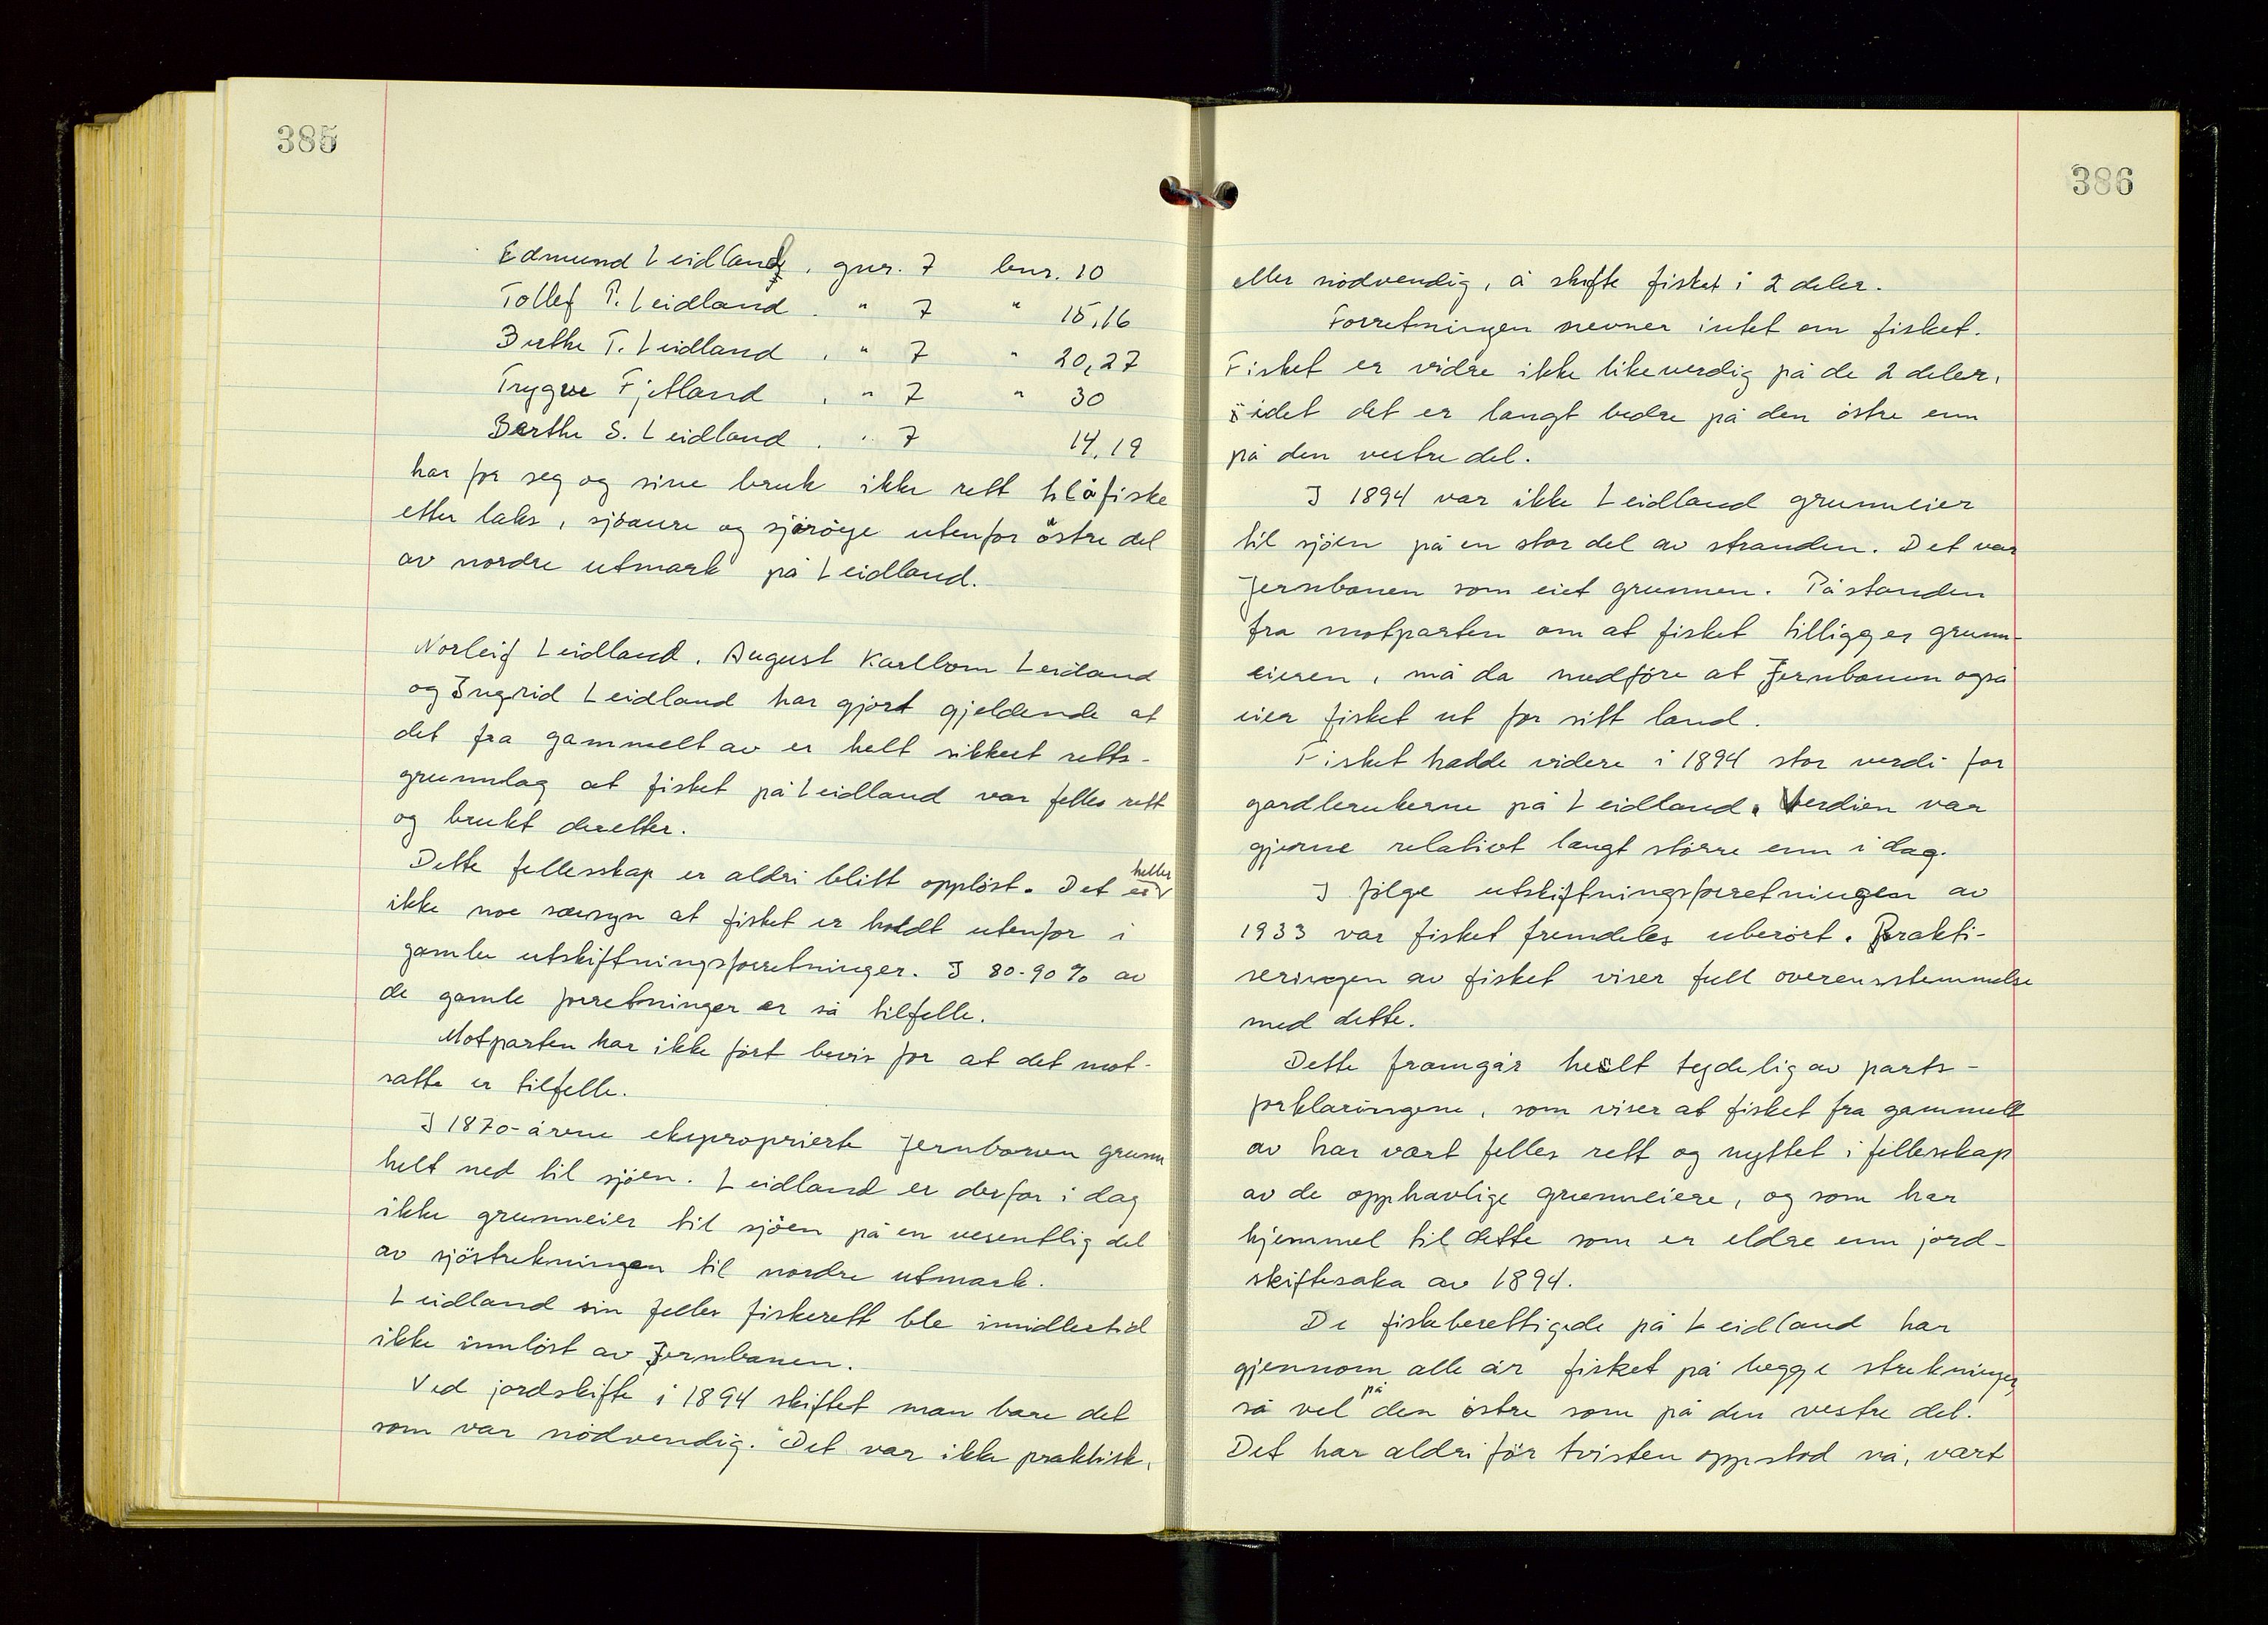 385
Edmund Leidland, gnr. 7 bnr. 10
Tollef P. Leidland. " 7 " 15,16
Berthe T. Leidland, " 7 " 20,27
Trygve Fjetland, " 7 " 30
Berthe S. Leidland. " 7 14,19
har for seg og sine bruk ikke rett til å fiske
etter laks, sjöaure og sjöröye utenfor östre del
av nordre utmark på Leidland.
Norleif Leidland, August Karlbom Leidland
og Ingrid Leidland har gjort gjeldende at
det fra gammelt av er helt sikkert retts-
grunnlag at fisket på Leidland var felles rett
og brukt deretter.
Dette fellesskap er aldri blitt opplöst. Det er heller
ikke noe særsyn at fisket er holdt utenfor i
gamle utskiftningsforretninger. I 80-90% av
de gamle forretninger er så tilfelle.
Motparten har ikke fört bevis for at det mot-
satte er tilfelle.
I 1870-årene eksproprierte Jernbanen grunn
helt ned til sjöen. Leidland er derfor i dag
ikke grunneier til sjöen på en vesentlig del
av sjöstrekningen til nordre utmark.
Leidland sin felles fiskerett ble imidlertid
ikke innlöst av Jernbanen.
Ved jordskifte i 1894 skiftet man bare det
som var nödvendig. Det var ikke praktisk,
386
eller nödvendig, å skifte fisket i 2 deler.
Forretningen nevner intet om fisket.
Fisket er vidre ikke likeverdig på de 2 deler,
idet det er langt bedre på den östre enn
på den vestre del.
I 1894 var ikke Leidland grunneier
til sjöen på en stor del av stranden. Det var
Jernbanen som eiet grunnen. Påstanden
fra motparten om at fisket tilligger grunn-
eieren, må da medföre at Jernbanen også
eier fisket ut for sitt land.
Fisket hadde videre i 1894 stor verdi for
gardbrukerne på Leidland. Verdien var
gjerne relativt langt större enn i dag.
I fölge utskiftningsforretningen av
1933 var fisket fremdeles uberört. Prakti-
seringen av fisket viser full overensstemmelse
med dette.
Dette framgår helt tydelig av parts-
forklaringene, som viser at fisket fra gammelt
av har vært felles rett og nyttet i fellesskap
av de opphavlige grunneiere, og som har
hjemmel til dette som er eldre enn jord-
skiftesaka av 1894.
De fiskeberettigede på Leidland har
gjennom alle år fisket på begge strekninger,
så vel på den östre som på den vestre del.
Det har aldri för tvisten oppstod nå, vært